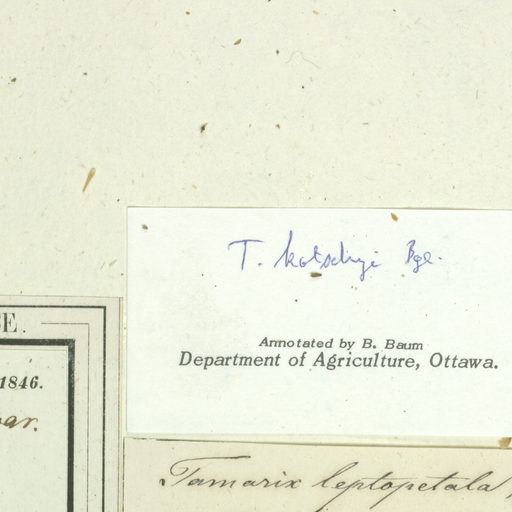 T. kotschyi Bge.
Annotated by B. Baum
Department of Agriculture, Ottawa.
E.
1846.
ar.
Tamarix leptopetala